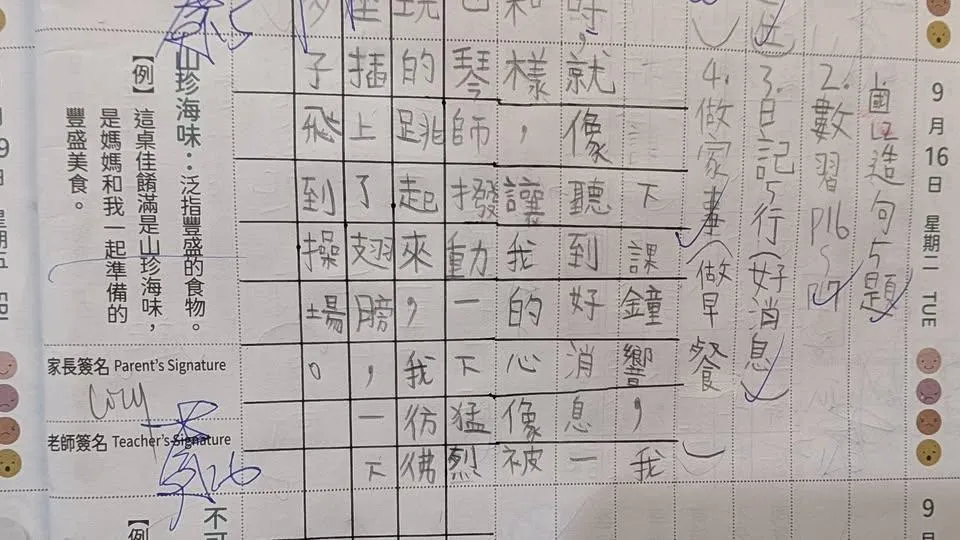 9月16日 星期二 TUE
1.國L2造句5題
2.數習P16~P17
3.日記5行(好消息)
4.做家事(做早餐)
下課鐘響,我
時,就像聽到好消息一
樣,讓我的心像被
琴師撥動一下猛烈
的跳起來,我彷彿
插上了翅膀,一下
子飛到操場。
山珍海味:泛指豐盛的食物。
【例】這桌佳餚滿是山珍海味,
是媽媽和我一起準備的
豐盛美食。
家長簽名 Parent's Signature
Cory
老師簽名 Teacher's Signature
【例】
9